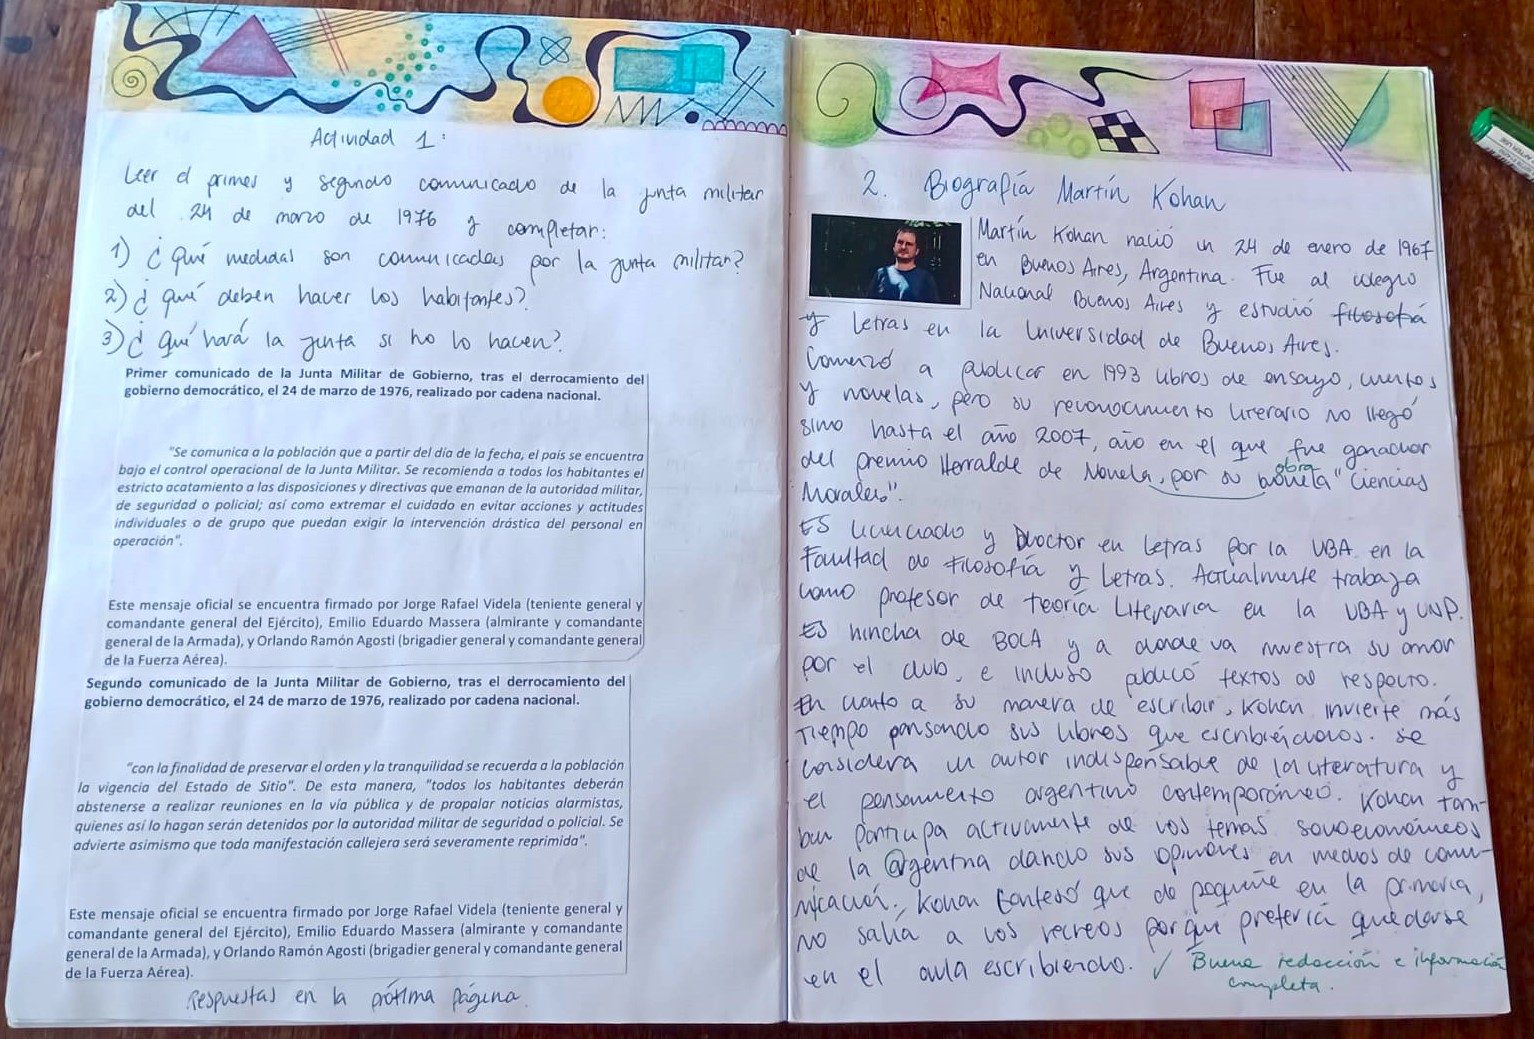 Actividad 1:
Leer el primer y segundo comunicado de la junta militar
del 24 de marzo de 1976 y completar:
1) ¿Qué medidas son comunicadas por la junta militar?
2) ¿qué deben hacer los habitantes?
3) ¿qué hará la junta si no lo hacen?
Primer comunicado de la Junta Militar de Gobierno, tras el derrocamiento del
gobierno democrático, el 24 de marzo de 1976, realizado por cadena nacional.
"Se comunica a la población que a partir del día de la fecha, el país se encuentra
bajo el control operacional de la Junta Militar. Se recomienda a todos los habitantes el
estricto acatamiento a las disposiciones y directivas que emanan de la autoridad militar,
de seguridad o policial; así como extremar el cuidado en evitar acciones y actitudes
individuales o de grupo que puedan exigir la intervención drástica del personal en
operación".
Este mensaje oficial se encuentra firmado por Jorge Rafael Videla (teniente general y
comandante general del Ejército), Emilio Eduardo Massera (almirante y comandante
general de la Armada), y Orlando Ramón Agosti (brigadier general y comandante general
de la Fuerza Aérea).
Segundo comunicado de la Junta Militar de Gobierno, tras el derrocamiento del
gobierno democrático, el 24 de marzo de 1976, realizado por cadena nacional.
"con la finalidad de preservar el orden y la tranquilidad se recuerda a la población
la vigencia del Estado de Sitio". De esta manera, "todos los habitantes deberán
abstenerse a realizar reuniones en la vía pública y de propalar noticias alarmistas,
quienes así lo hagan serán detenidos por la autoridad militar de seguridad o policial. Se
advierte asimismo que toda manifestación callejera será severamente reprimida".
Este mensaje oficial se encuentra firmado por Jorge Rafael Videla (teniente general y
comandante general del Ejército), Emilio Eduardo Massera (almirante y comandante
general de la Armada), y Orlando Ramón Agosti (brigadier general y comandante general
de la Fuerza Aérea).
Respuestas en la próxima página.
2. Biografía Martín Kohan
Martín Kohan nació un 24 de enero de 1967
en Buenos Aires, Argentina. Fue al colegio
Nacional Buenos Aires y estudió filosofía
y letras en la Universidad de Buenos Aires.
Comenzó a publicar en 1993 libros de ensayo, cuentos
y novelas, pero su reconocimiento literario no llegó
sino hasta el año 2007, año en el que fue ganador
del premio Herralde de Novela, por su novela "Ciencias
obra
Morales".
Es licenciado y Doctor en Letras por la UBA en la
Facultad de Filosofía y Letras. Actualmente trabaja
como profesor de Teoría Literaria en la UBA y UNP.
Es hincha de BOCA y a donde va muestra su amor
por el club, e incluso publicó textos al respecto.
En cuanto a su manera de escribir, Kohan invierte más
tiempo pensando sus libros que escribiéndolos. Se
considera un autor indispensable de la literatura y
el pensamiento argentino contemporáneo. Kohan tam-
bien participa activamente de los temas socioeconómicos
de la Argentina dando sus opiniones en medios de comu-
nicación. Kohan confesó que de pequeñe en la primaria,
no salía a los recreos porque prefería quedarse
en el aula escribiendo.
✓ Buena redacción e información
completa.